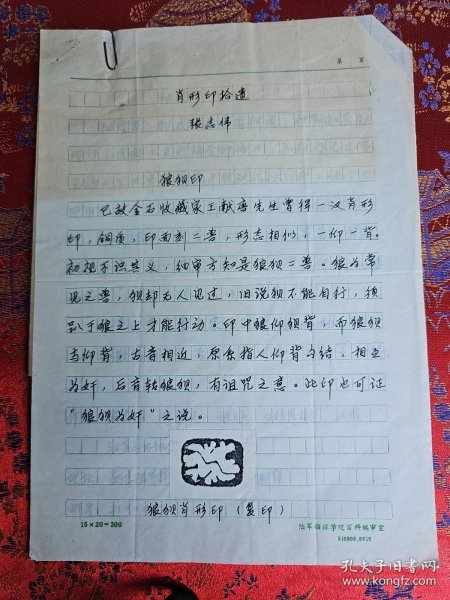 第 页
肖形印拾遗
张志伟
狼狈印
已故金石收藏家王献唐先生曾得一汉肖形
印，铜质，印面刻二兽，形态相似，一仰一背。
初视不识其义，细审方知是狼狈二兽。狼为常
见之兽，狈却无人见过，旧说狈不能自行，须
趴于狼之上才能行动。印中狼仰狈背，而狼狈
与仰背，古音相近，原系指人仰背勾结，相互
为奸，后音转狼狈，有诅咒之意。此印也可证
“狼狈为奸”之说。
狼狈肖形印（复印）
15×20=300
陆军指挥学院百科编审室
910806.8610
孔夫子旧书网